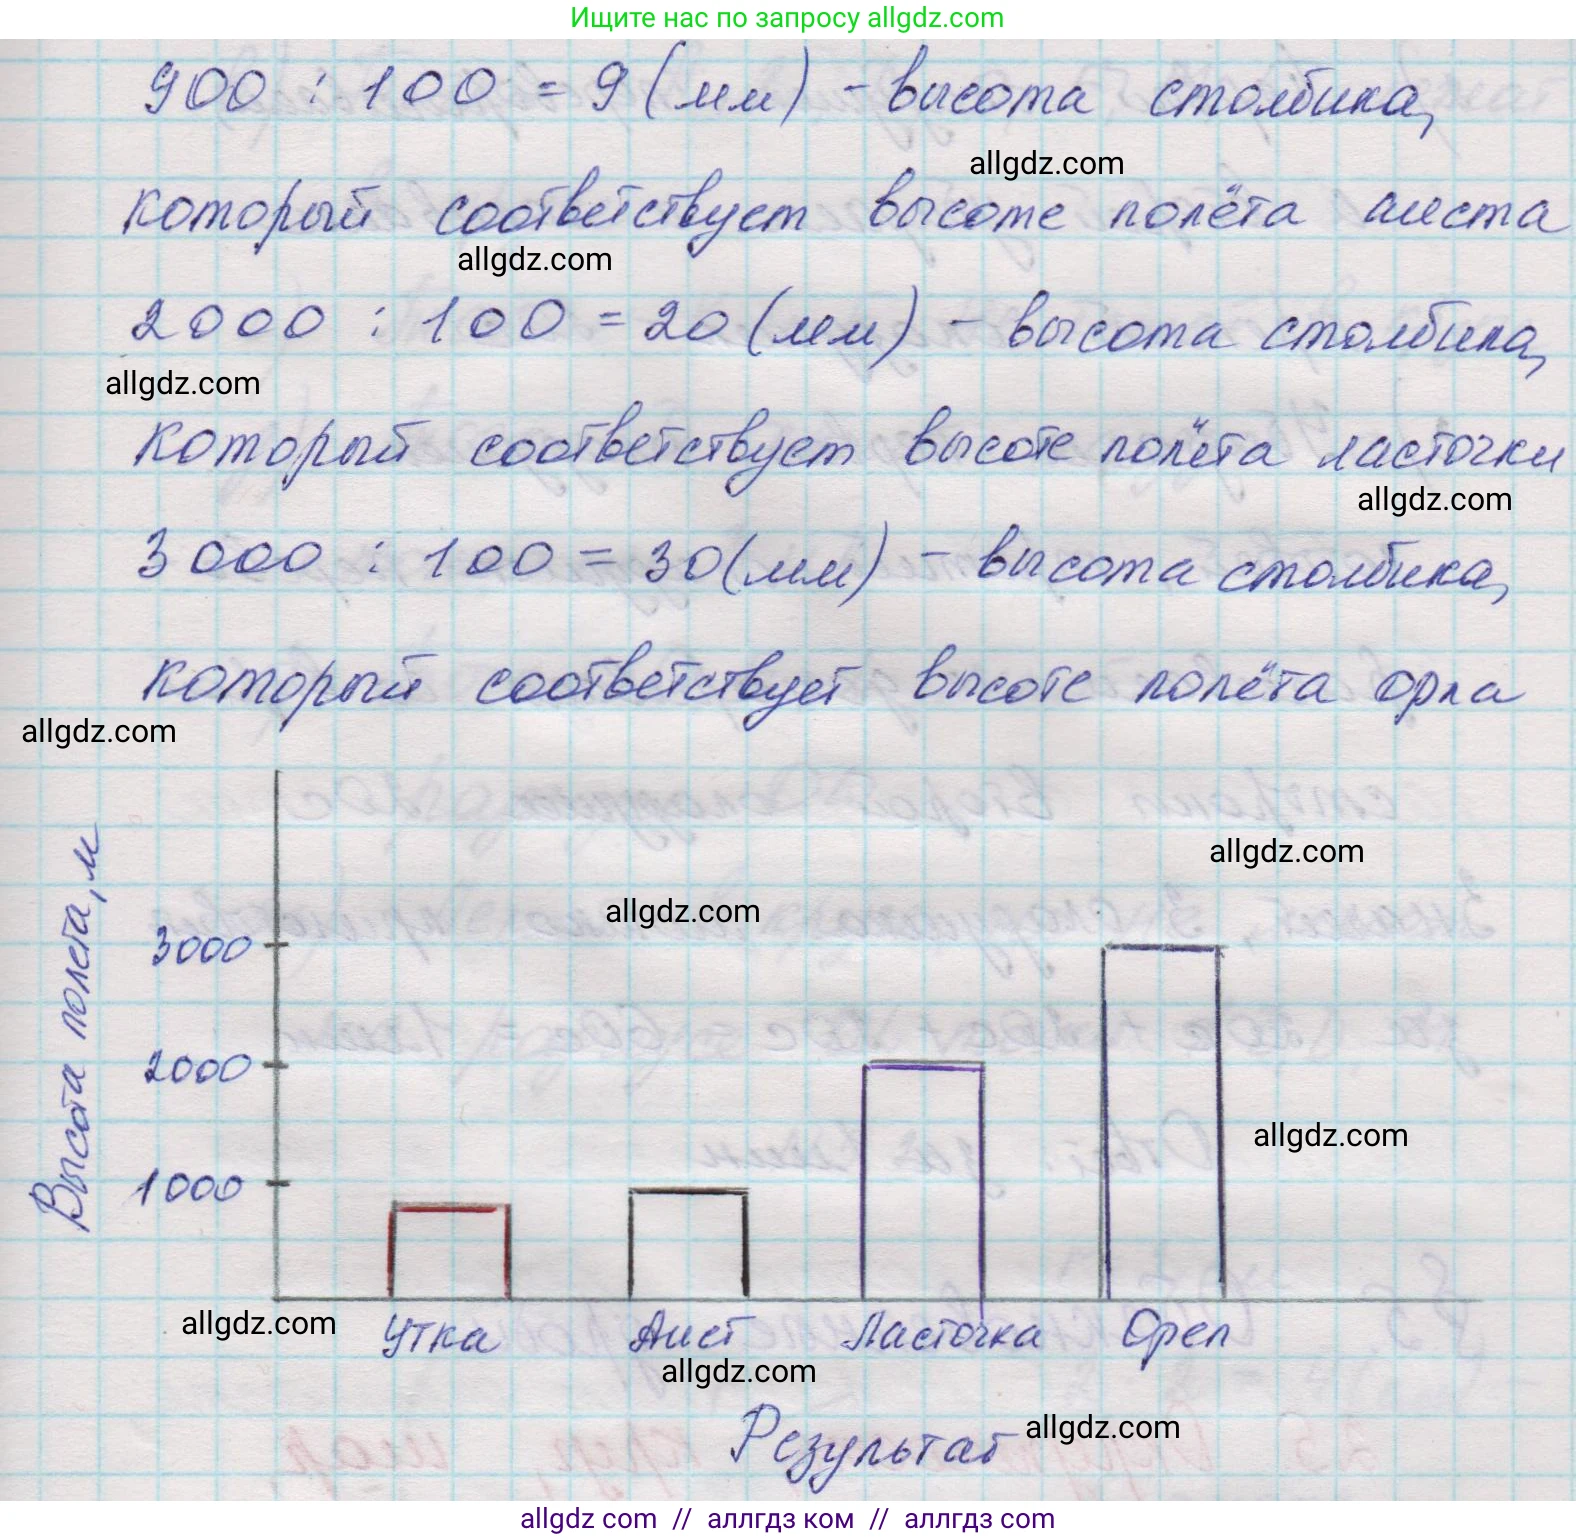 Ищите нас по запросу allgdz.com
900 : 100 = 9 (мм) - высота столбика,
allgdz.com
который соответствует высоте полёта аиста
allgdz.com
2000 : 100 = 20 (мм) - высота столбика,
allgdz.com
который соответствует высоте полёта ласточки
allgdz.com
3000 : 100 = 30 (мм) - высота столбика,
который соответствует высоте полёта орла
allgdz.com
Высота полета, м
allgdz.com
allgdz.com
3000
2000
allgdz.com
1000
allgdz.com
Утка Аист Ласточка Орел
allgdz.com
Результат allgdz.com
allgdz com // аллгдз ком // allgdz com